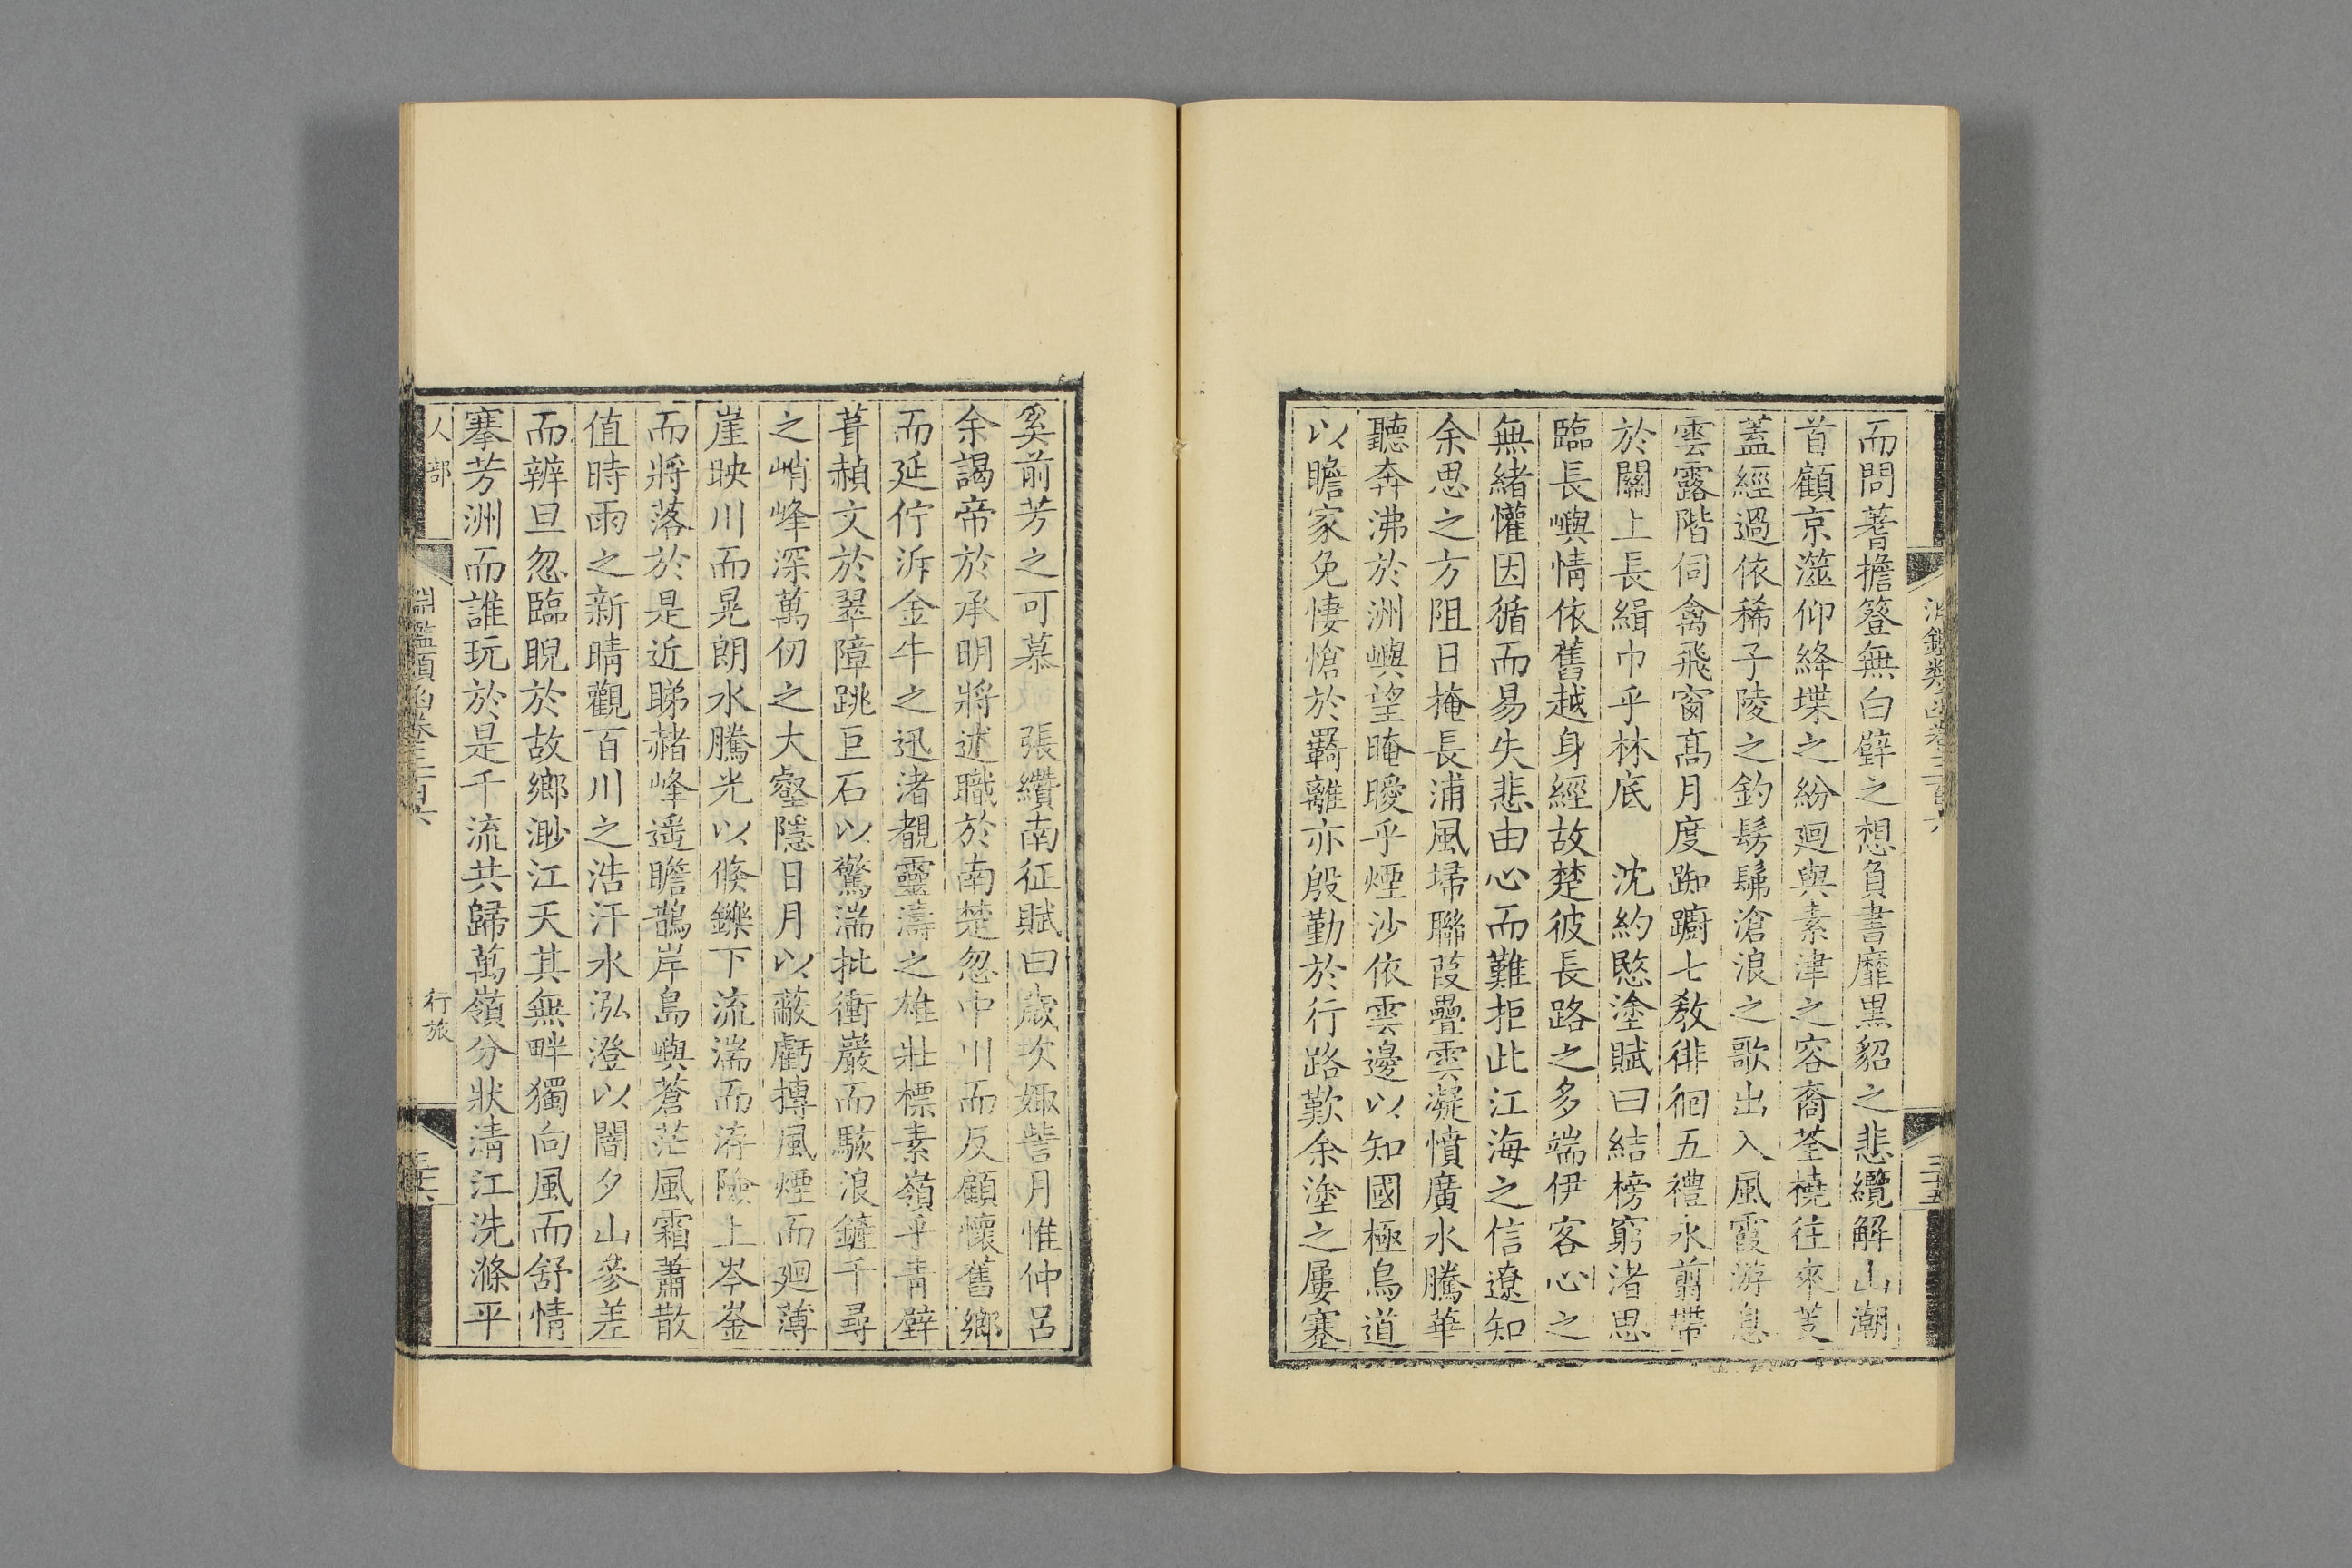 而問蓍擔簦無白璧之想負書靡黒貂之悲纜解山潮
首顧京滋仰絳堞之紛廻與素津之容裔荃橈往來芰
蓋經過依稀子陵之釣髣髴滄浪之歌出入風霞游息
雲露階伺禽飛窗髙月度踟躕七教徘徊五禮永翦帶
於關上長緝巾乎林底　沈約愍塗賦曰結榜窮渚思
臨長嶼情依舊越身經故楚彼長路之多端伊客心之
無緒懽因循而易失悲由心而難拒此江海之信遼知
余思之方阻日掩長浦風掃聯葭疊雲凝憤廣水騰華
聽奔沸於洲嶼望晻曖乎煙沙依雲邊以知國極鳥道
以瞻家免悽愴於羇離亦殷勤於行路歎余塗之屢蹇
奚前芳之可慕　張纘南征賦曰歲次娵訾月惟仲呂
余謁帝於承明將述職於南楚忽中川而反顧懷舊鄉
而延佇泝金牛之迅渚覩靈濤之雄壯標素嶺乎青壁
葺赬文於翠障跳巨石以驚湍批衝巖而駭浪鏟千尋
之峭峰深萬仞之大壑隱日月以蔽虧摶風煙而廻薄
崖映川而晃朗水騰光以倏鑠下流湍而洊險上岑崟
而將落於是近睇赭峰遥瞻鵲岸島嶼蒼茫風霜蕭散
值時雨之新晴觀百川之浩汗水泓澄以闇夕山參差
而辨旦忽臨睨於故鄉渺江天其無畔獨向風而舒情
搴芳洲而誰玩於是千流共歸萬嶺分狀清江洗滌平
人部
淵鑑類函卷三百六
行旅